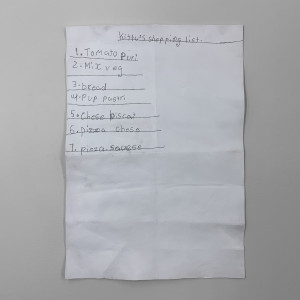 Kittu's shopping list.
1. Tomato Puri
2. Mix veg
3. bread
4. Pup pastri
5. Chese biscat
6. Pizza chese
7. pizza souese